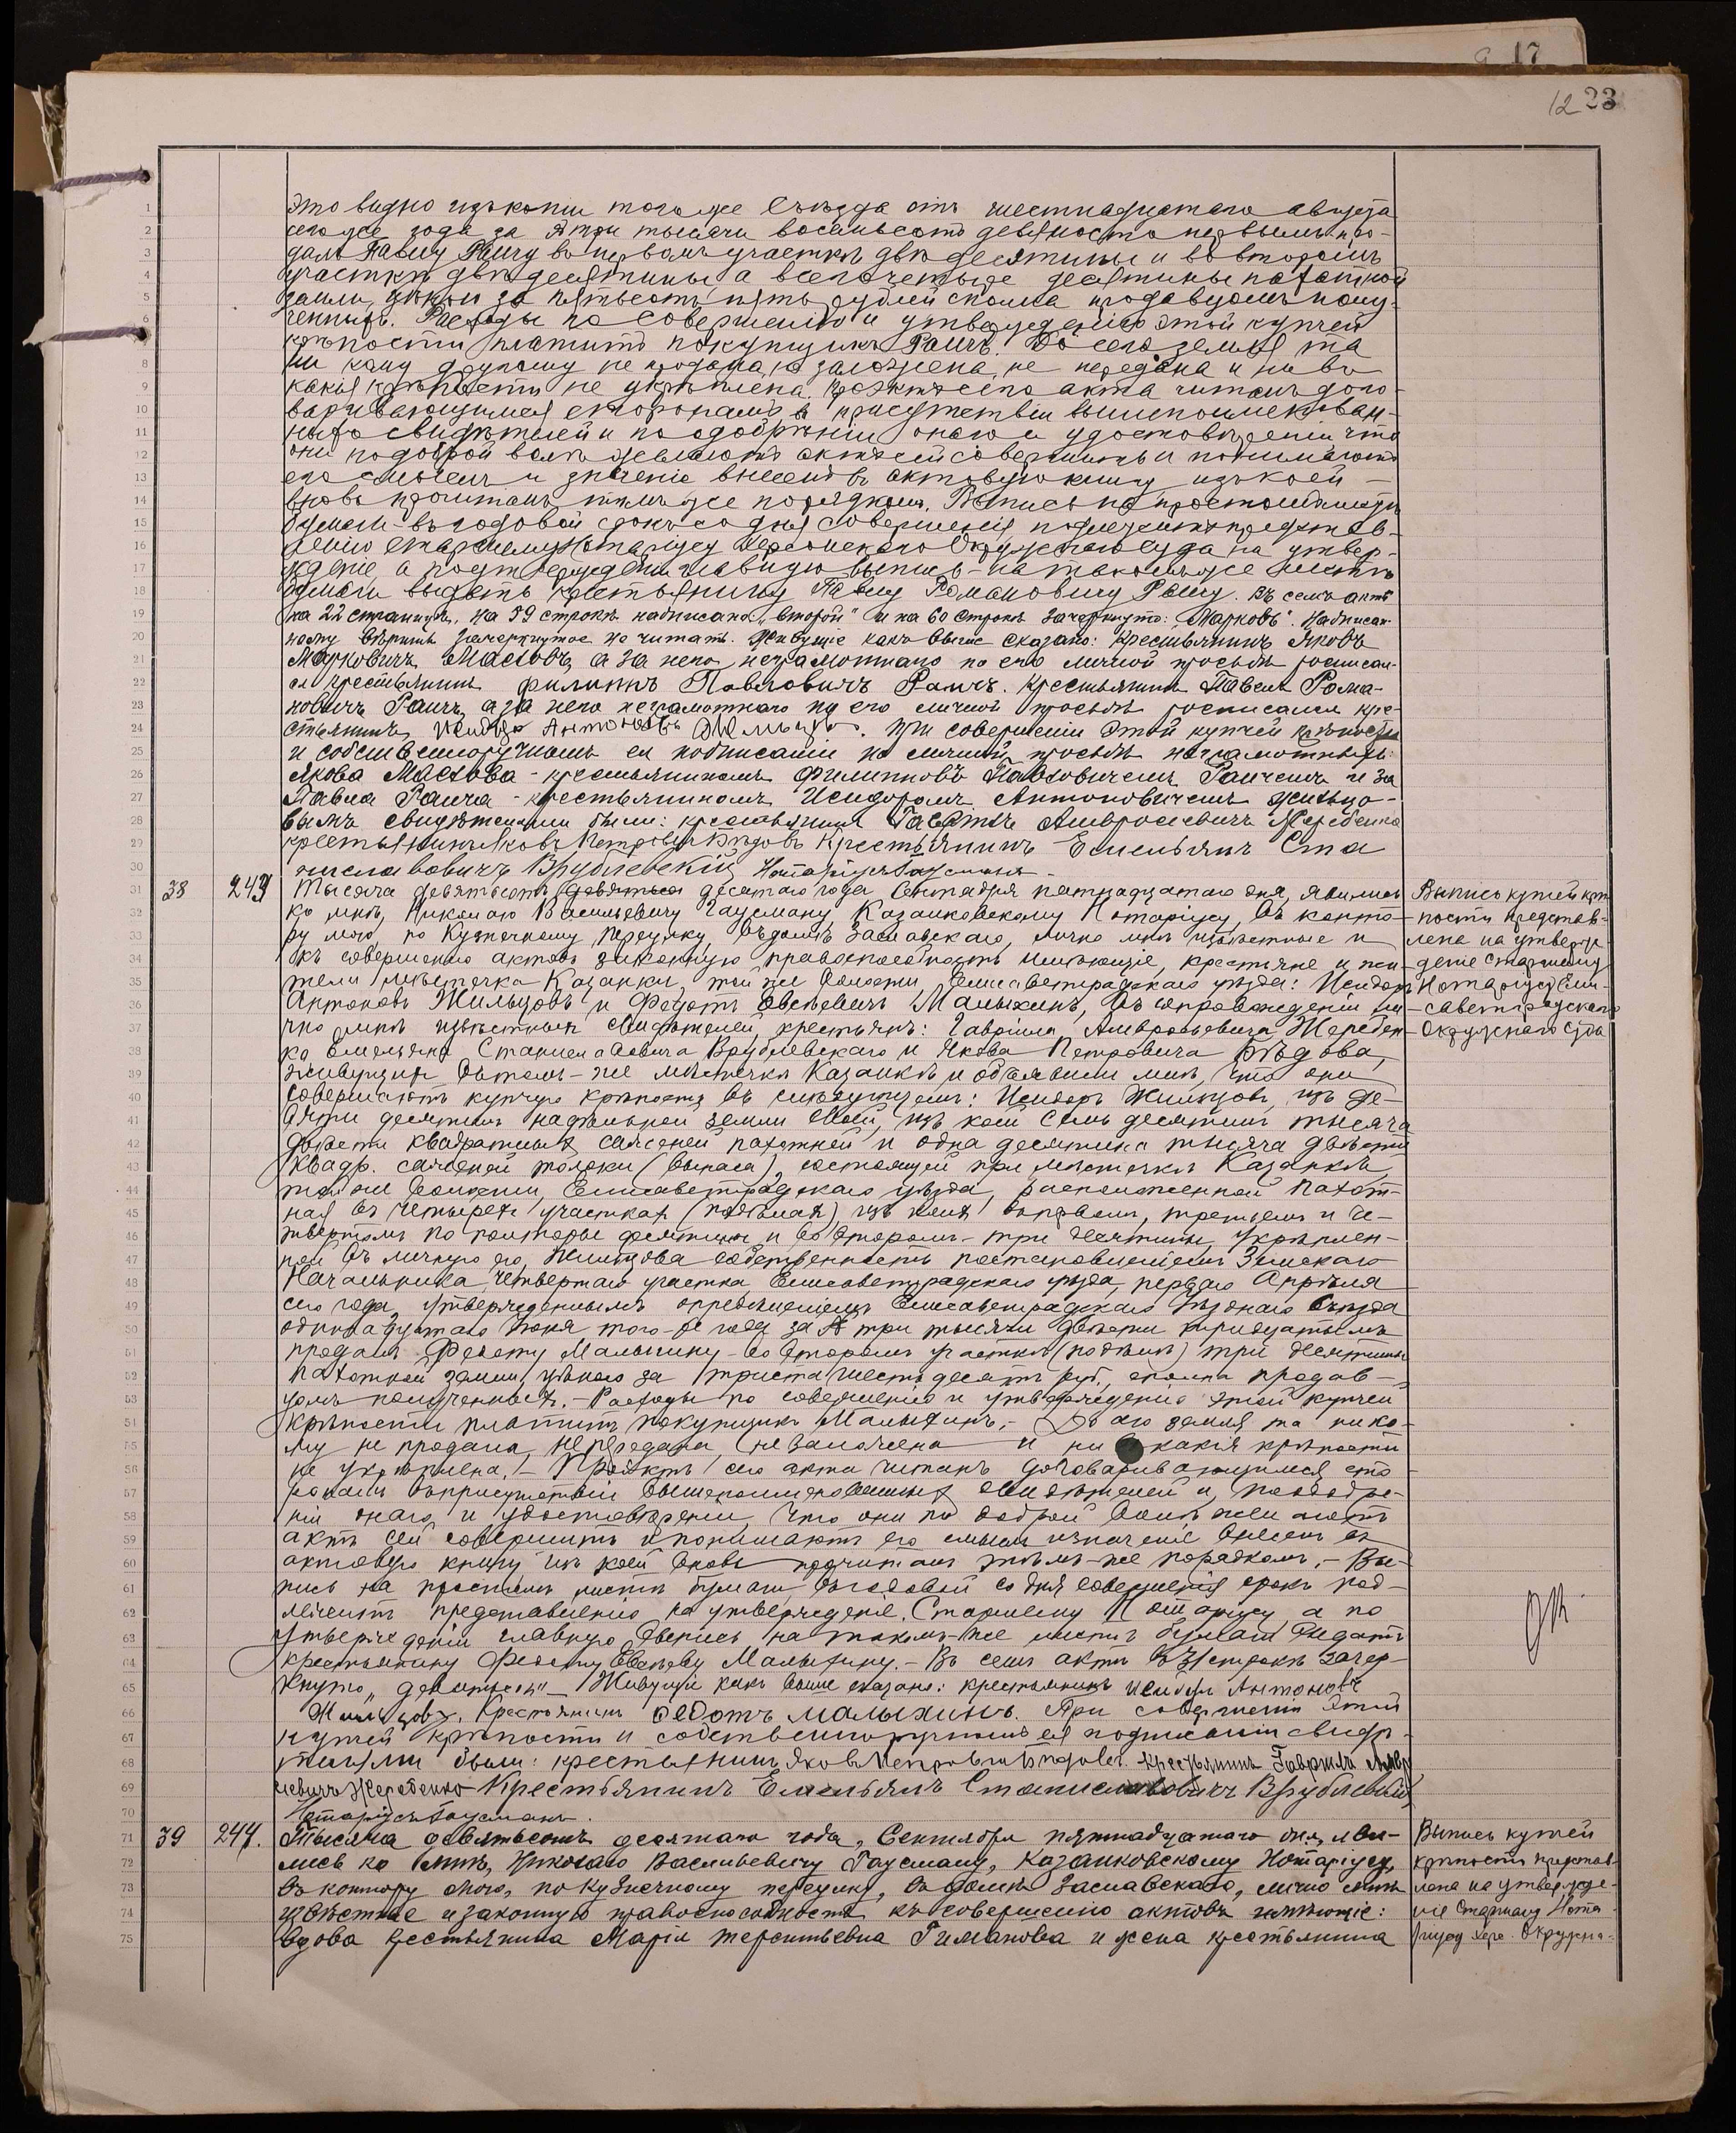 17
12 23
это видно изъ копіи того-же Съѣзда отъ шестнадцатаго августа
сего же года за № три тысячи восемьсотъ девяносто первымъ про-
далъ Павлу Раичу въ первомъ участкѣ двѣ десятины и во второмъ
участкѣ двѣ десятины, а всего четыре десятины пахатной
земли, цѣною за пятьсотъ пять рублей сполна продавцомъ полу-
ченныхъ. Расходы по совершенію и утвержденію этой купчей
крѣпости платитъ покупщикъ Раичъ. До сего земля та
ни кому другому не продана, не заложена, не передана и ни въ
какія крѣпости не укрѣплена. Проэктъ сего акта читанъ дого-
варивающимся сторонамъ въ присутствіи вышепоименован-
ныхъ свидѣтелей и по одобреніи онаго и удостовѣреніи что
они по доброй волѣ желаютъ актъ сей совершить и понимаютъ
его смыслъ и значеніе внесенъ въ актовую книгу изъ коей
вновь прочитанъ тѣмъ же порядкомъ. Выпись на простомъ листѣ
бумаги въ годовой срокъ со дня совершенія подлежитъ представ-
ленію Старшему Нотаріусу Херсонскаго Окружнаго Суда на утвер-
жденіе а по утвержденіи главную выпись - на такомъ же листѣ
бумаги выдать крестьянину Павлу Романовичу Раичу. Въ семъ актѣ
на 22 страницѣ, на 59 строкѣ надписано: „второй" и на 60 строкѣ зачеркнуто: „Марковъ". Надписан-
ному вѣрить зачеркнутое не читать. Живущіе какъ выше сказано: Крестьянинъ Яковъ
Марковичъ Масловъ, а за него неграмотнаго по его личной просьбѣ росписал-
ся крестьянинъ Филиппъ Павловичъ Раичъ. Крестьянинъ Павелъ Рома-
новичъ Раичъ, а за него неграмотнаго по его личной просьбѣ росписался кре-
стьянинъ Исидоръ Антоновъ Жильцовъ. При совершеніи этой купчей крѣпости
и собственноручномъ ея подписаніи по личной просьбѣ неграмотныхъ:
Якова Маслова - крестьяниномъ Филипповъ Павловичемъ Раичемъ и за
Павла Раича - крестьяниномъ Исидоромъ Антоновичемъ Жильцо-
вымъ свидѣтелями были: крестьянинъ Гавріилъ Амвросіевичъ Жеребенко
крестьянинъ Яковъ Петровичъ Бѣдовъ Крестьянинъ Емельянъ Ста
ниславовичъ Врублевскій Нотаріусъ Гаусманъ.
38 243 Тысяча девятьсотъ девятьсот десятаго года Сентября пятнадцатаго дня, явились
ко мнѣ, Николаю Васильевичу Гаусману, Казанковскому Нотаріусу, въ конто-
ру мою, по Кузнечному переулку, въ домѣ Заславскаго, лично мнѣ извѣстные и
къ совершенію актовъ законную правоспособность имѣющіе, крестьяне и жи-
тели мѣстечка Казанки, той же волости, Елисаветградскаго уѣзда: Исидоръ
Антоновъ Жильцовъ и Федотъ Евсѣевичъ Малыхинъ, въ сопровожденіи ли-
чно мнѣ извѣстныхъ свидѣтелей, крестьянъ: Гавріила Амвросьевича Жеребен-
ко, Емельяна Станиславовича Врублевскаго и Якова Петровича Бѣдова,
живущихъ въ томъ-же мѣстечкѣ Казанкѣ и объявили мнѣ, что они
совершаютъ купчую крѣпость въ слѣдующемъ: Исидоръ Жильцовъ, изъ де-
вяти десятинъ надѣльной земли своей, изъ коей семь десятинъ тысяча
двѣсти квадратныхъ саженей пахатной и одна десятина тысяча двѣсти
квадр. саженей толоки (выпаса), состоящей при мѣстечкѣ Казанкѣ,
той же волости, Елисаветградскаго уѣзда, расположенной пахат-
ная въ четырехъ участкахъ (поляхъ) изъ коихъ въ первомъ, третьемъ и че-
твертомъ по полторы десятины и во второмъ - три десятины, укрѣплен-
ной въ личную его, Жильцова собственность постановленіемъ Земскаго
Начальника четвертаго участка Елисаветградскаго уѣзда, перваго Апрѣля
сего года, утвержденнымъ опредѣленіемъ Елисаветградскаго Уѣзднаго Съѣзда
одинадцатаго Іюня того-же года за № три тысячи двѣсти тридцатымъ
продалъ Федоту Малыхину - во второмъ участкѣ (полѣ) три десятины
пахатной земли, цѣною за триста шестьдесятъ руб., сполна продав-
цомъ полученныхъ. - Расходы по совершенію и утвержденію этой купчей
крѣпости платитъ покупщикъ Малыхинъ. - До сего земля та нико-
му не продана, не передана, не заложена и ни въ какія крѣпости
не укрѣплена. - Проэктъ сего акта читанъ договаривающимся сто-
ронамъ въ присутствіи вышепоименованныхъ свидѣтелей и, по одобре-
ніи онаго и удостовѣреніи, что они по доброй волѣ желаютъ
актъ сей совершить и понимаютъ его смыслъ и значеніе внесенъ въ
актовую книгу изъ коей вновь прочитанъ тѣмъ-же порядкомъ. - Вы-
пись на простомъ листѣ бумаги, въ годовой со дня совершенія срокъ под-
лежитъ представленію на утвержденіе Старшему Нотаріусу, а по
утвержденіи главную выпись на такомъ-же листѣ бумаги выдать
крестьянину Федоту Евсѣеву Малыхину. - Въ семъ актѣ въ 31 строкѣ зачер-
кнуто „девятьсот" - Живущіе какъ выше сказано: крестьянинъ Исидоръ Антоновъ
Жильцовъ. Крестьянинъ Федотъ Малыхинъ. При совершеніи этой
купчей крѣпости и собственноручномъ ея подписаніи свидѣ-
телями были: крестьянинъ Яковъ Петровичъ Бѣдовъ. Крестьянинъ Гавріилъ Амвро
сіевичъ Жеребенко Крестьянинъ Емельянъ Станиславовичъ Врублевскій
Нотаріусъ Гаусманъ.
Выпись купчей крѣ-
пости представ-
лена на утверж-
деніе Старшему
Нотаріусу Ели-
саветградскаго
Окружнаго Суда
39 244. Тысяча девятьсотъ десятаго года, Сентября пятнадцатаго дня, яви-
лись ко мнѣ, Николаю Васильевичу Гаусману, Казанковскому Нотаріусу,
въ контору мою, по Кузнечному переулку, въ домѣ Заславскаго, лично мнѣ
извѣстные и законную правоспособность къ совершенію актовъ имѣющіе:
вдова крестьянина Марія Терентьевна Гиманова и жена крестьянина
Выпись купчей
крѣпости представ-
лена на утвержде-
ніе Старшему Нота-
ріусу Хер. Окружна-